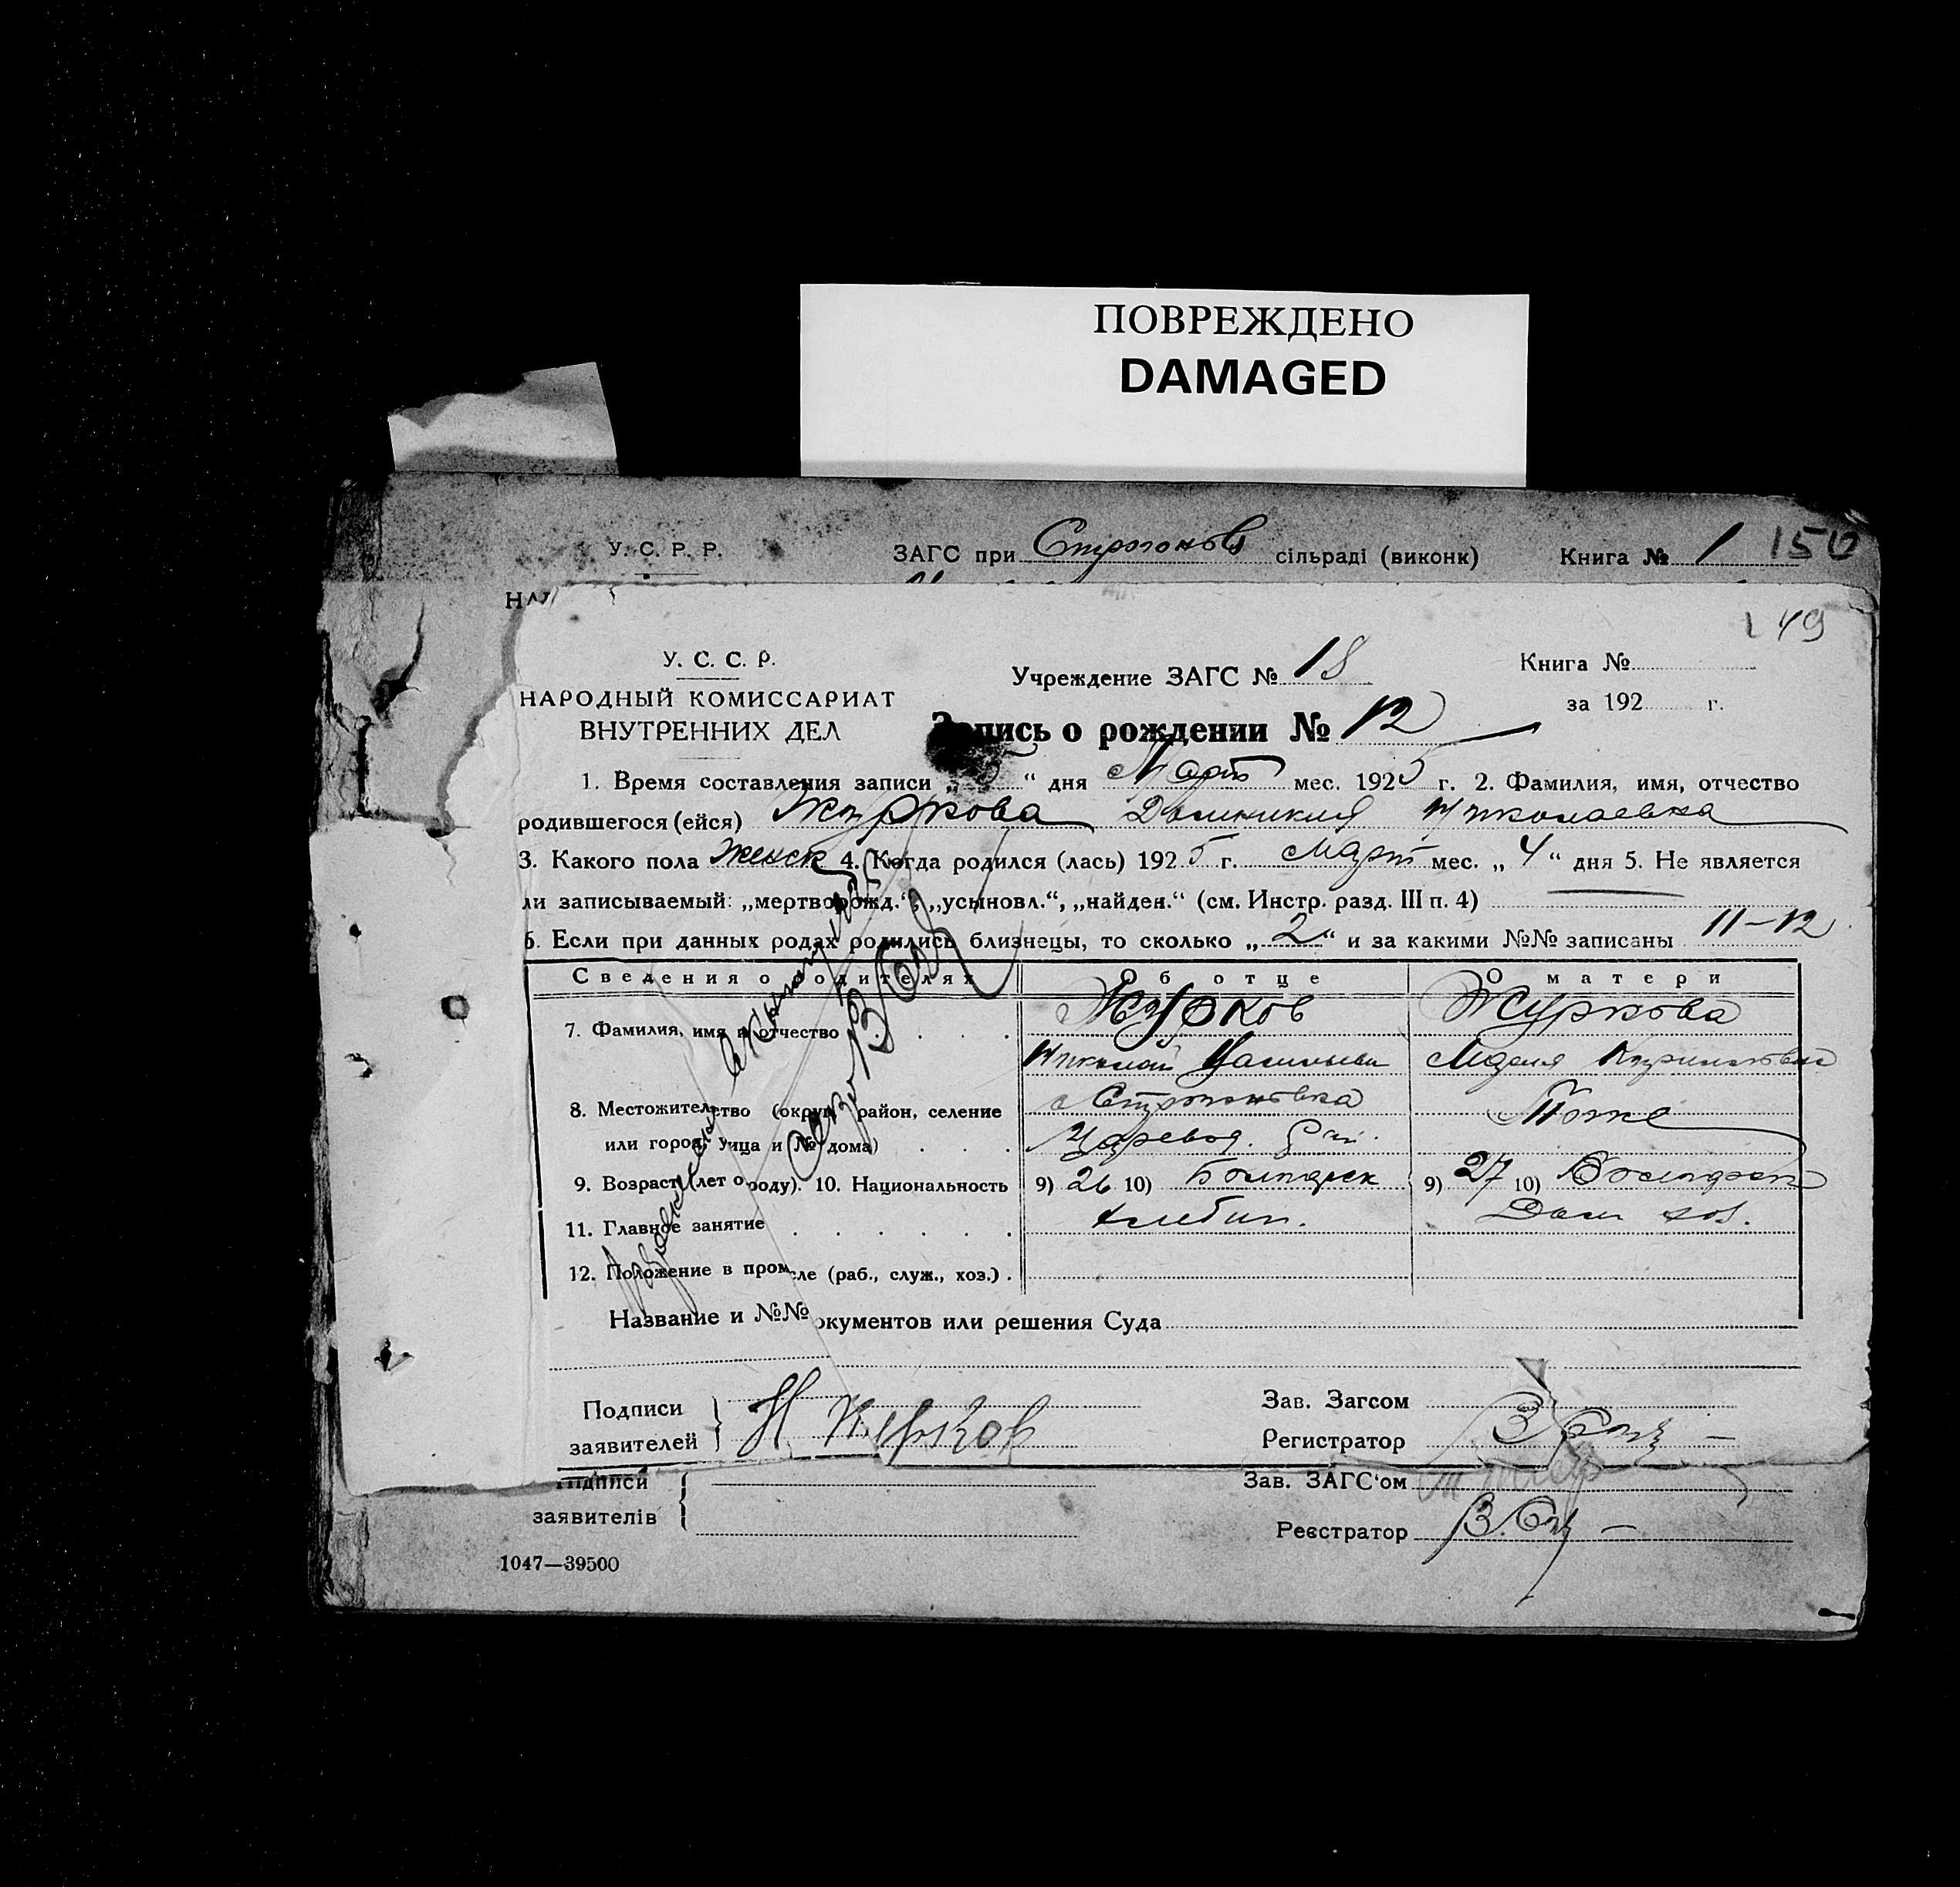 ПОВРЕЖДЕНО
DAMAGED
У. С. Р. Р. ЗАГС при Строгонов сільраді (виконк) Книга № 1 150
149
У. С. С. Р. Учреждение ЗАГС № 18 Книга №
НАРОДНЫЙ КОМИССАРИАТ за 192 г.
ВНУТРЕННИХ ДЕЛ Запись о рождении № 12
1. Время составления записи „5“ дня Март мес. 1925 г. 2. Фамилия, имя, отчество
родившегося (ейся) Журкова Домникия Николаевна
3. Какого пола женск 4. Когда родился (лась) 1925 г. Март мес. „4“ дня 5. Не является
ли записываемый: „мертворожд.“, „усыновл.“, „найден.“ (см. Инстр. разд. III п. 4)
6. Если при данных родах родились близнецы, то сколько „2“ и за какими №№ записаны 11-12
Сведения о родителях Об отце О матери
7. Фамилия, имя и отчество Журков Журкова
Николай Мария
8. Местожительство (округ, район, селение с Строгоновка Тоже
или город, улица и № дома) Царевод. Рай.
9. Возраст (лет от роду). 10. Национальность 9) 26 10) Болгарск 9) 27 10) Болгарск
11. Главное занятие Хлебоп. Дом хоз.
12. Положение в промысле (раб., служ., хоз.)
Название и №№ документов или решения Суда
Подписи заявителей Н Журков Зав. Загсом
Регистратор
Підписи заявителів Зав. ЗАГС'ом
Реєстратор
1047—39500